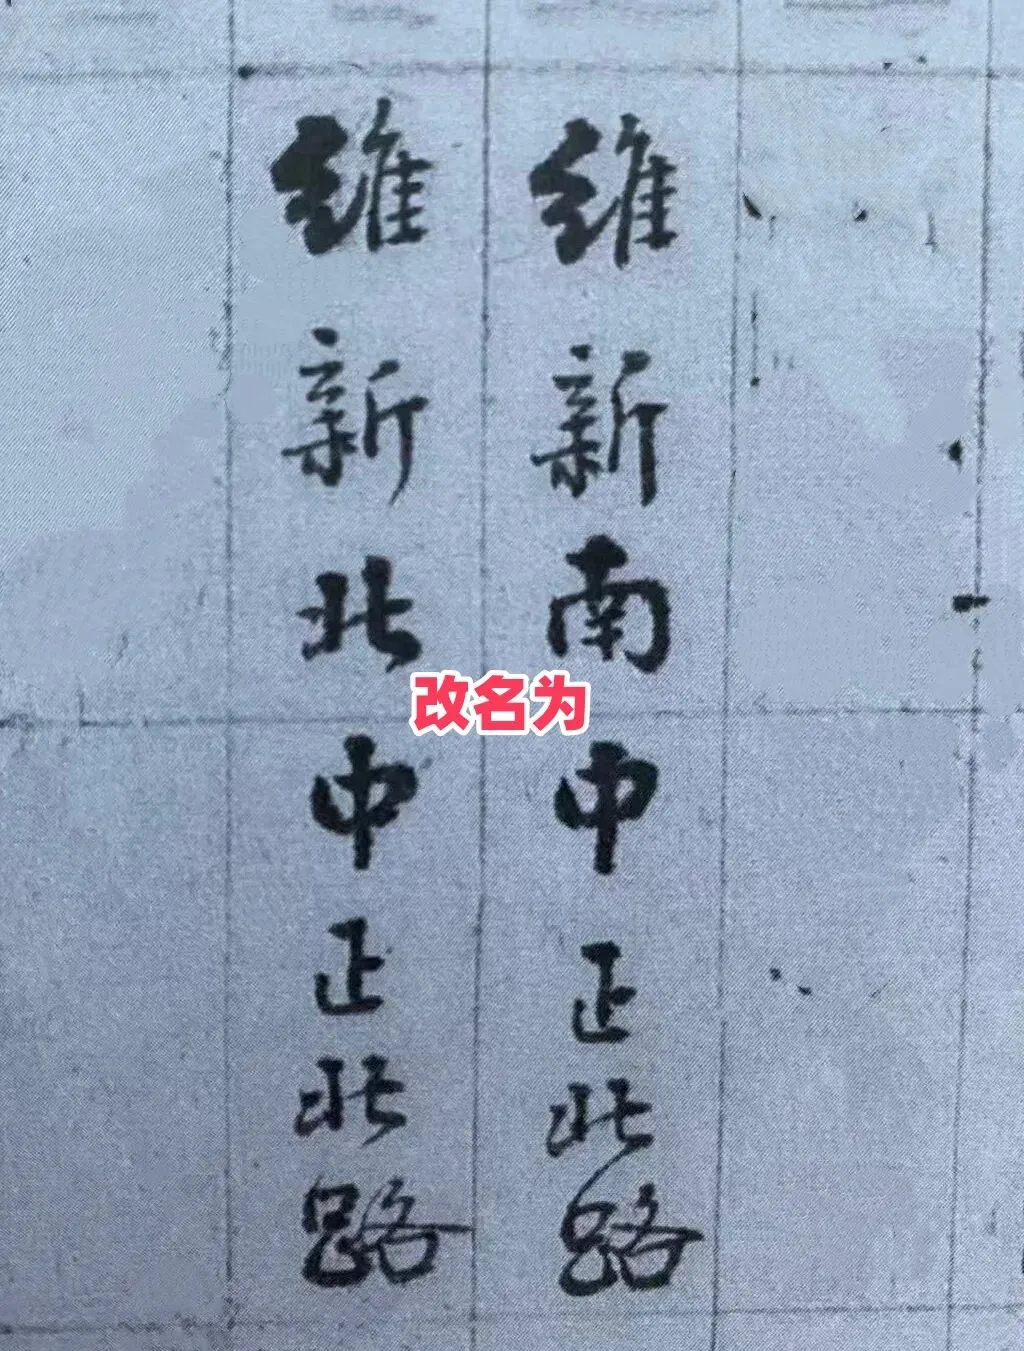 維新南中正北路
維新北中正北路
改名为